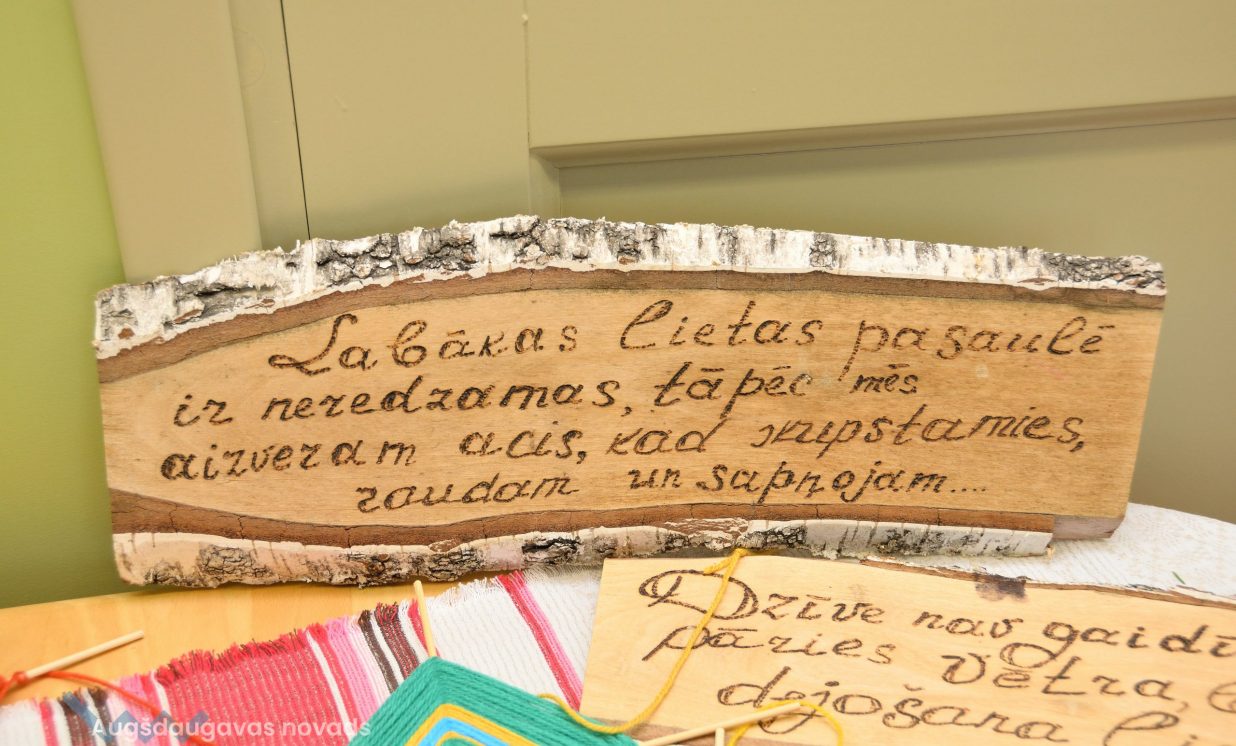 Labākas lietas pasaulē
ir neredzamas, tāpēc mēs
aizveram acis, kad skupstamies,
raudam un sapņojam....
Dzīve nav gaidī
pāries vētra,
dejošana l
Augšdaugavas novads